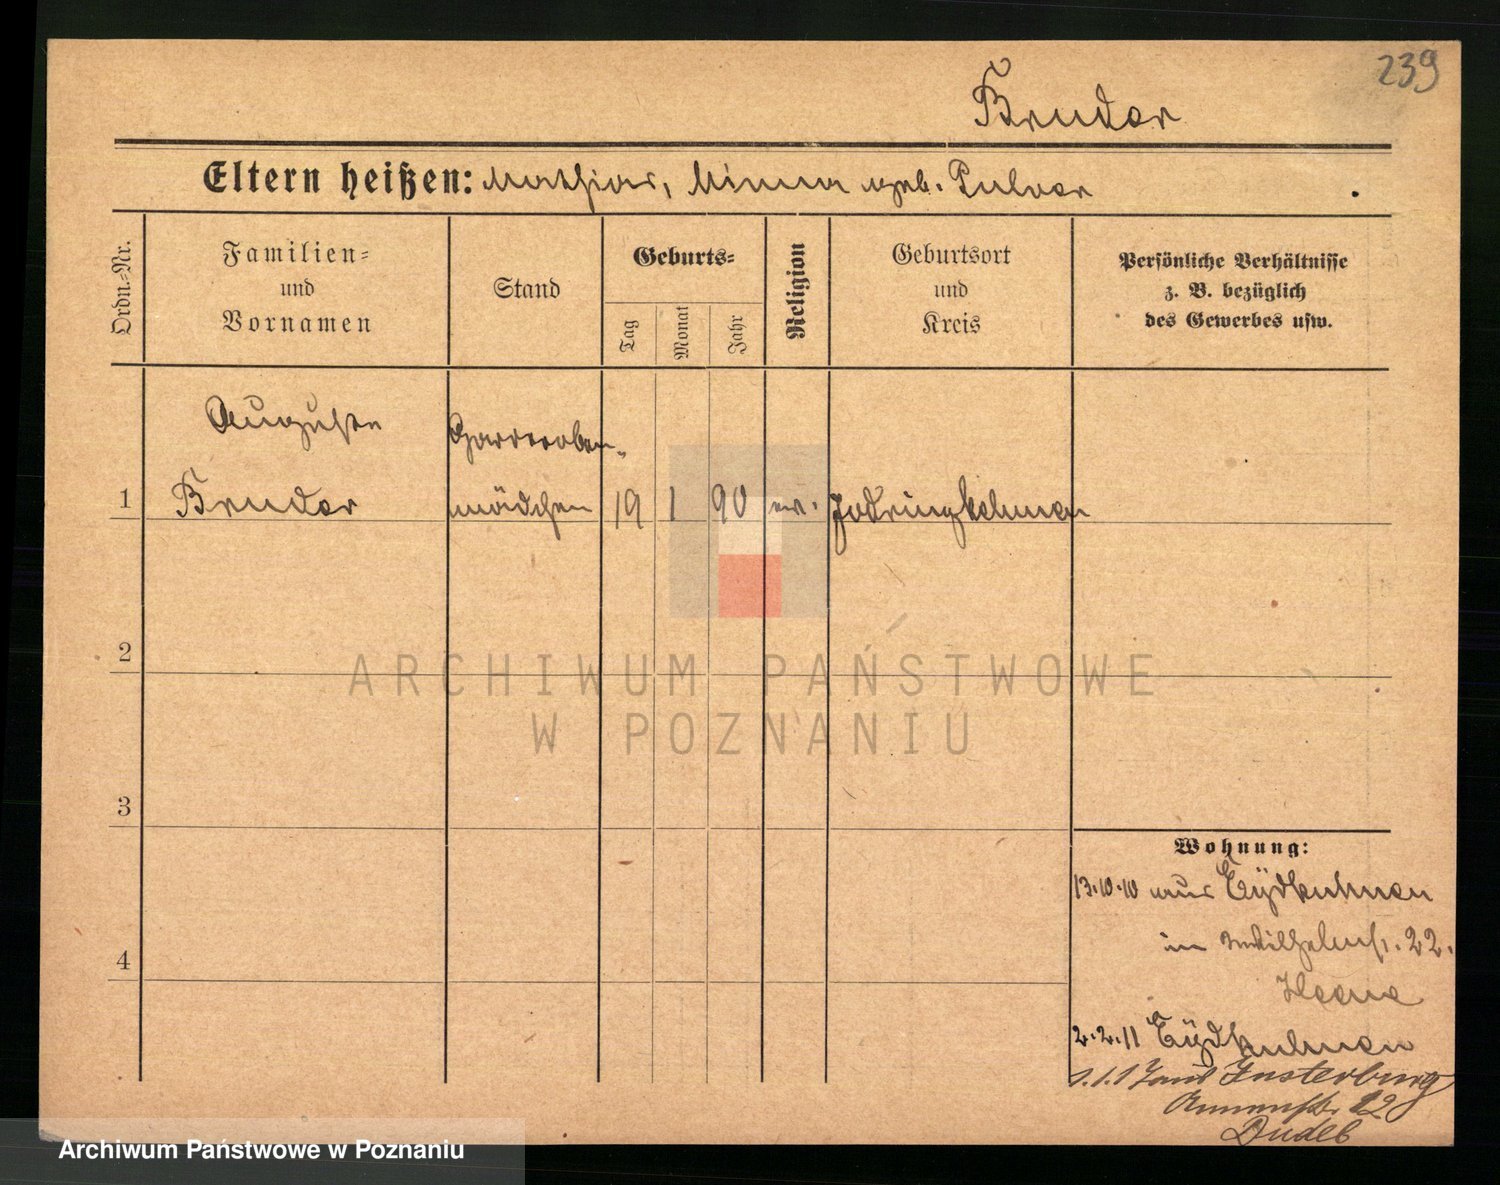 239
Bruder
Eltern heißen: Mathias, Minna geb. Pulver
Ordn.-Nr.
Familien-
und
Vornamen
Stand
Geburts-
Tag
Monat
Jahr
Religion
Geburtsort
und
Kreis
Persönliche Verhältnisse
z. B. bezüglich
des Gewerbes usw.
Auguste
Garderoben-
1 Bruder mädchen 19 1 90 ev. Jodringkehmen
2
3
4
Wohnung:
13.10.10 aus Eydkuhnen
in Wilhelmstr. 22.
2.2.11 Eydkuhnen
Insterburg
12
ARCHIWUM PAŃSTWOWE
W POZNANIU
Archiwum Państwowe w Poznaniu